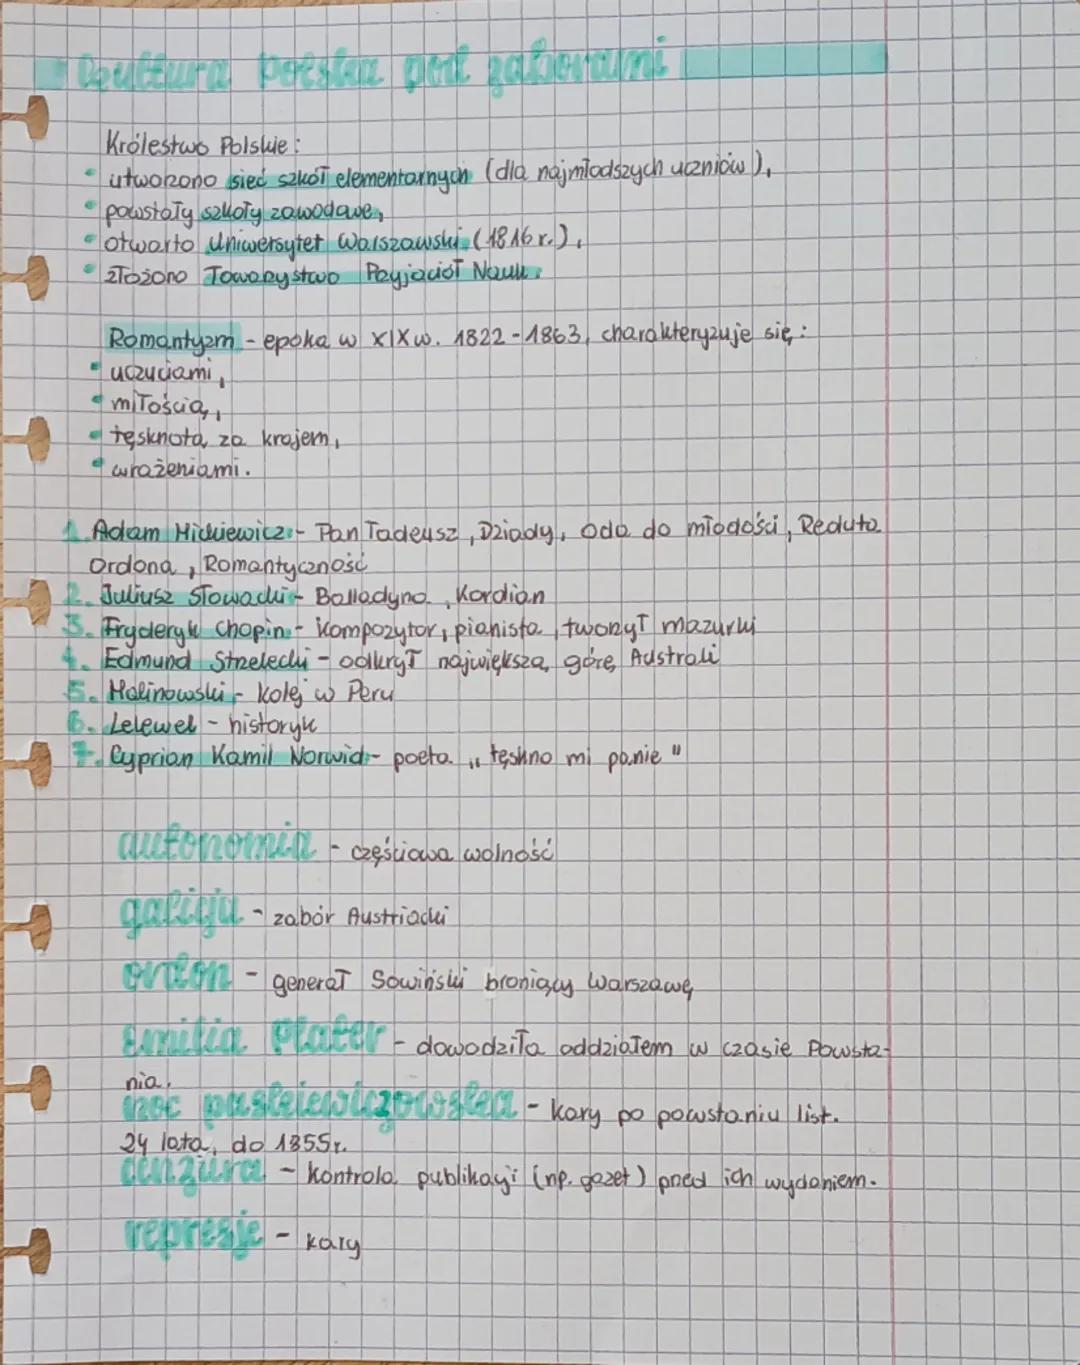 Kultura polska pod zaborami
Królestwo Polskie:
• utworzono sieć szkół elementarnych (dla najmłodszych uczniów),
• powstały szkoły zawodowe,
• otwarto Uniwersytet Warszawski (1816 r.),
• złożono Towarzystwo Przyjaciół Nauk.
Romantyzm - epoka w XIX w. 1822 - 1863, charakteryzuje się:
• uczuciami,
• miłością,
• tęsknotą za krajem,
• wrażeniami.
1. Adam Mickiewicz - Pan Tadeusz, Dziady, Oda do młodości, Reduta
Ordona, Romantyczność
2. Juliusz Słowacki - Balladyna, Kordian
3. Fryderyk Chopin - kompozytor, pianista, tworzył mazurki
4. Edmund Strzelecki - odkrył największą górę Australi
5. Malinowski - kolej w Peru
6. Lelewel - historyk
7. Cyprian Kamil Norwid - poeta „tęskno mi panie"
autonomia - częściowa wolność
galicja - zabór Austriacki
ordon - generał Sowiński broniący Warszawę
Emilia Plater - dowodziła oddziałem w czasie Powsta-
nia.
noc paskiewiczowska - kary po powstaniu list.
24 lata, do 1855r.
cenzura - kontrola publikacji (np. gazet) przed ich wydaniem.
represje - kary